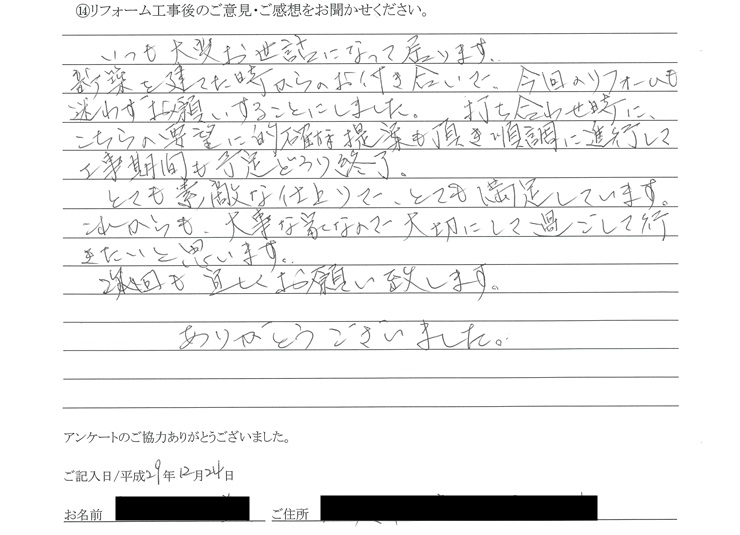 ⑭リフォーム工事後のご意見・ご感想をお聞かせください。
いつも大変お世話になって居ります。
新築を建てた時からのお付き合いで、今回のリフォームも
迷わずお願いすることにしました。 打ち合わせ時に、
こちらの要望に的確な提案も頂き順調に進行して
工事期間も予定どうり終了。
とても素敵な仕上りで、とても満足しています。
これからも、大事な家なので大切にして過ごして行
きたいと思います。
次回も宜しくお願い致します。
ありがとうございました。
アンケートのご協力ありがとうございました。
ご記入日/平成29年12月24日
お名前
ご住所